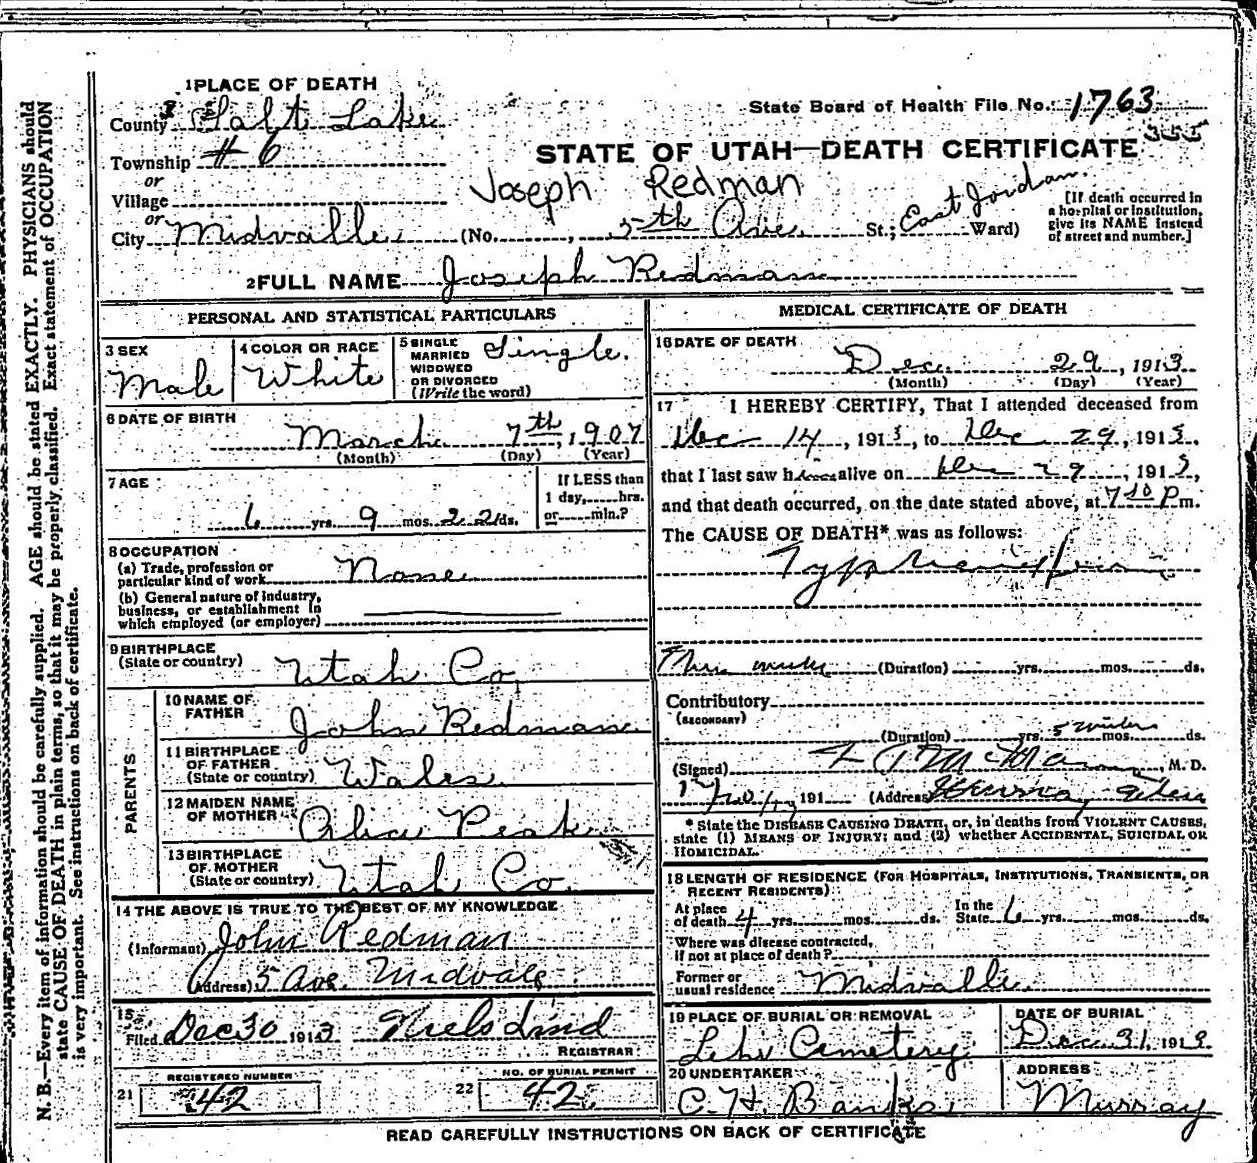 1 PLACE OF DEATH
County Salt Lake
State Board of Health File No. 1763
355
Township # 6
or
STATE OF UTAH—DEATH CERTIFICATE
Joseph Redman
Village
or
City Midvalle (No. , 5th Ave. St.; East Jordan. Ward)
[If death occurred in a hospital or institution, give its NAME instead of street and number.]
2 FULL NAME Joseph Redman
PERSONAL AND STATISTICAL PARTICULARS
3 SEX
Male
4 COLOR OR RACE
White
5 SINGLE
MARRIED
WIDOWED
OR DIVORCED
(Write the word)
Single.
6 DATE OF BIRTH
March 7th, 1907
(Month) (Day) (Year)
7 AGE
6 yrs. 9 mos. 22 ds.
If LESS than
1 day, hrs.
or min.?
8 OCCUPATION
(a) Trade, profession or
particular kind of work None
(b) General nature of industry,
business, or establishment in
which employed (or employer)
9 BIRTHPLACE
(State or country) Utah Co.
PARENTS
10 NAME OF
FATHER John Redman
11 BIRTHPLACE
OF FATHER
(State or country) Wales
12 MAIDEN NAME
OF MOTHER Alice Peak
13 BIRTHPLACE
OF MOTHER
(State or country) Utah Co.
14 THE ABOVE IS TRUE TO THE BEST OF MY KNOWLEDGE
(Informant) John Redman
(Address) 5 Ave. Midvale
15
Filed Dec 30 1913 Niels Lind
REGISTRAR
REGISTERED NUMBER
21 42
NO. OF BURIAL PERMIT
22 42.
MEDICAL CERTIFICATE OF DEATH
16 DATE OF DEATH
Dec. 29, 1913
(Month) (Day) (Year)
17 I HEREBY CERTIFY, That I attended deceased from
Dec 14, 1913, to Dec 29, 1913,
that I last saw him alive on Dec 29, 1913,
and that death occurred, on the date stated above, at 7 30 P m.
The CAUSE OF DEATH* was as follows:
(Duration) yrs. mos. ds.
Contributory
(SECONDARY)
(Duration) yrs. mos. ds.
(Signed) , M. D.
191 (Address) Murray, Utah
* State the DISEASE CAUSING DEATH, or, in deaths from VIOLENT CAUSES,
state (1) MEANS OF INJURY; and (2) whether ACCIDENTAL, SUICIDAL OR
HOMICIDAL.
18 LENGTH OF RESIDENCE (FOR HOSPITALS, INSTITUTIONS, TRANSIENTS, OR
RECENT RESIDENTS)
At place
of death 4 yrs. mos. ds. In the State 6 yrs. mos. ds.
Where was disease contracted,
if not at place of death?
Former or
usual residence Midvalle.
19 PLACE OF BURIAL OR REMOVAL
Lehi Cemetery
DATE OF BURIAL
Dec. 31, 1913.
20 UNDERTAKER
C. H Banks.
ADDRESS
Murray
READ CAREFULLY INSTRUCTIONS ON BACK OF CERTIFICATE
N. B.—Every item of information should be carefully supplied. AGE should be stated EXACTLY. PHYSICIANS should
state CAUSE OF DEATH in plain terms, so that it may be properly classified. Exact statement of OCCUPATION
is very important. See instructions on back of certificate.